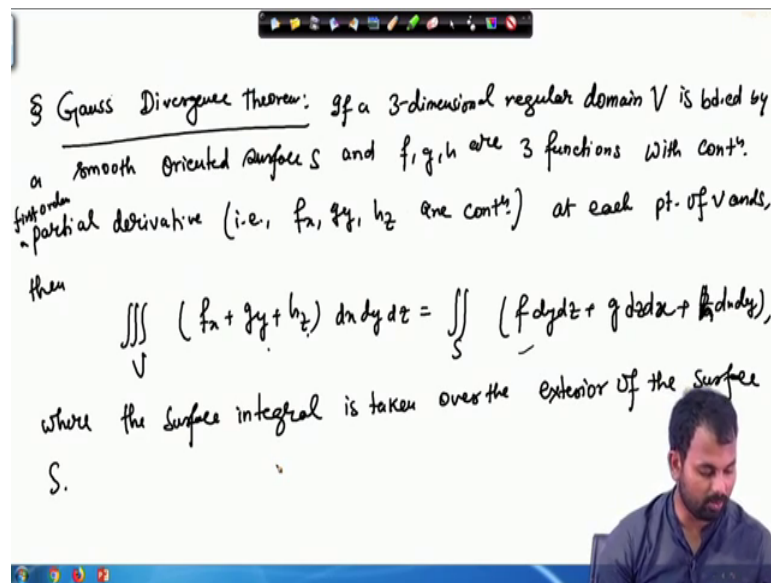 § Gauss Divergence Theorem: If a 3-dimensional regular domain V is bded by
a smooth oriented surface S and f, g, h are 3 functions with contˢ.
first order
partial derivative (i.e., fx, gy, hz are contˢ.) at each pt. of V and S,
then
∭_V (fx + gy + hz) dx dy dz = ∬_S (f dy dz + g dz dx + h dx dy),
where the surface integral is taken over the exterior of the surface
S.